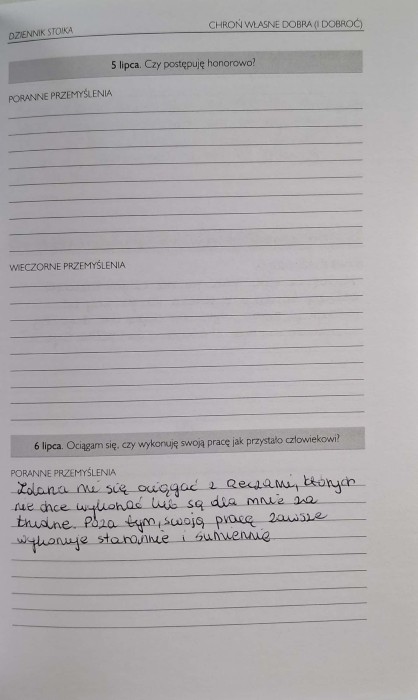 DZIENNIK STOIKA
CHROŃ WŁASNE DOBRA (I DOBROĆ)
5 lipca. Czy postępuję honorowo?
PORANNE PRZEMYŚLENIA
WIECZORNE PRZEMYŚLENIA
6 lipca. Ociągam się, czy wykonuję swoją pracę jak przystało człowiekowi?
PORANNE PRZEMYŚLENIA
Zdarza mi się ociągać z rzeczami, których
nie chce wykonać lub są dla mnie za
trudne. Poza tym, swoją pracę zawsze
wykonuje starannie i sumiennie